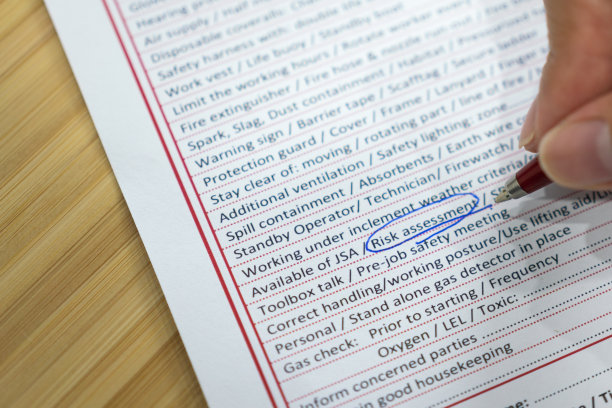 Hearing
Air supply / Half
Disposable coveralls:
Safety harness with: double
Work vest / Life buoy / Standby boat
Limit the working hours / Rotate worker every
Fire extinguisher / Fire hose & nozzle
Spark, Slag, Dust containment / Habitat / Pressurized
Warning sign / Barrier tape / Scafftag / Secure ladder
Protection guard / Cover / Frame / Lanyard /
Stay clear of: moving / rotating part / line of fire /
Additional ventilation / Safety lighting: zone
Spill containment / Absorbents / Earth wire
Standby Operator/ Technician/ Firewatch/
Working under inclement weather criteria
Available of JSA / Risk assessment /
Toolbox talk / Pre-job safety meeting
Correct handling/working posture/Use lifting aid/
Personal / Stand alone gas detector in place
Gas check: Prior to starting / Frequency
Oxygen / LEL / Toxic:
Inform concerned parties
in good housekeeping
Name: